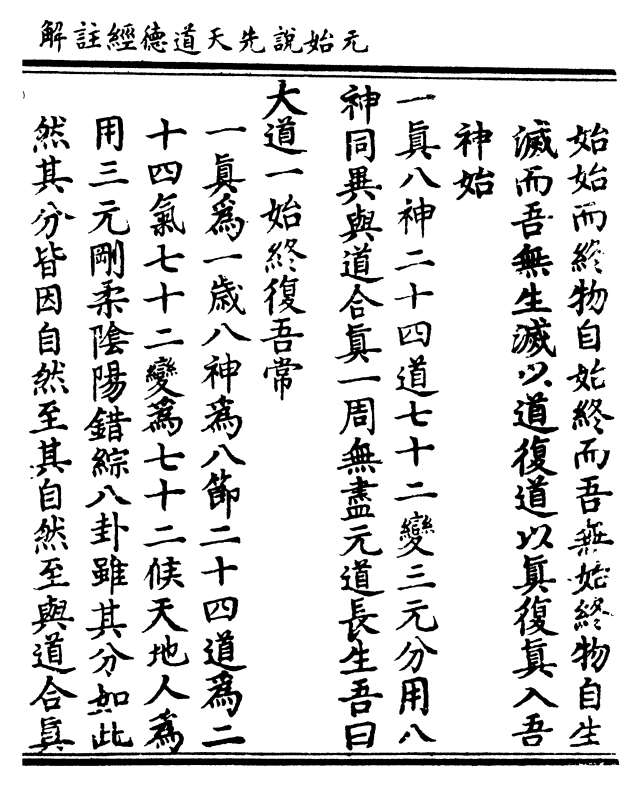 元始說先天道德經註解
始始而終物自始終而吾無始終物自生
滅而吾無生滅以道復道以眞復眞入吾
神始
一眞八神二十四道七十二變三元分用八
神同異與道合眞一周無盡元道長生吾曰
大道一始終復吾常
一眞爲一歲八神爲八節二十四道爲二
十四氣七十二變爲七十二候天地人爲
用三元剛柔陰陽錯綜八卦雖其分如此
然其分皆因自然至其自然至與道合眞